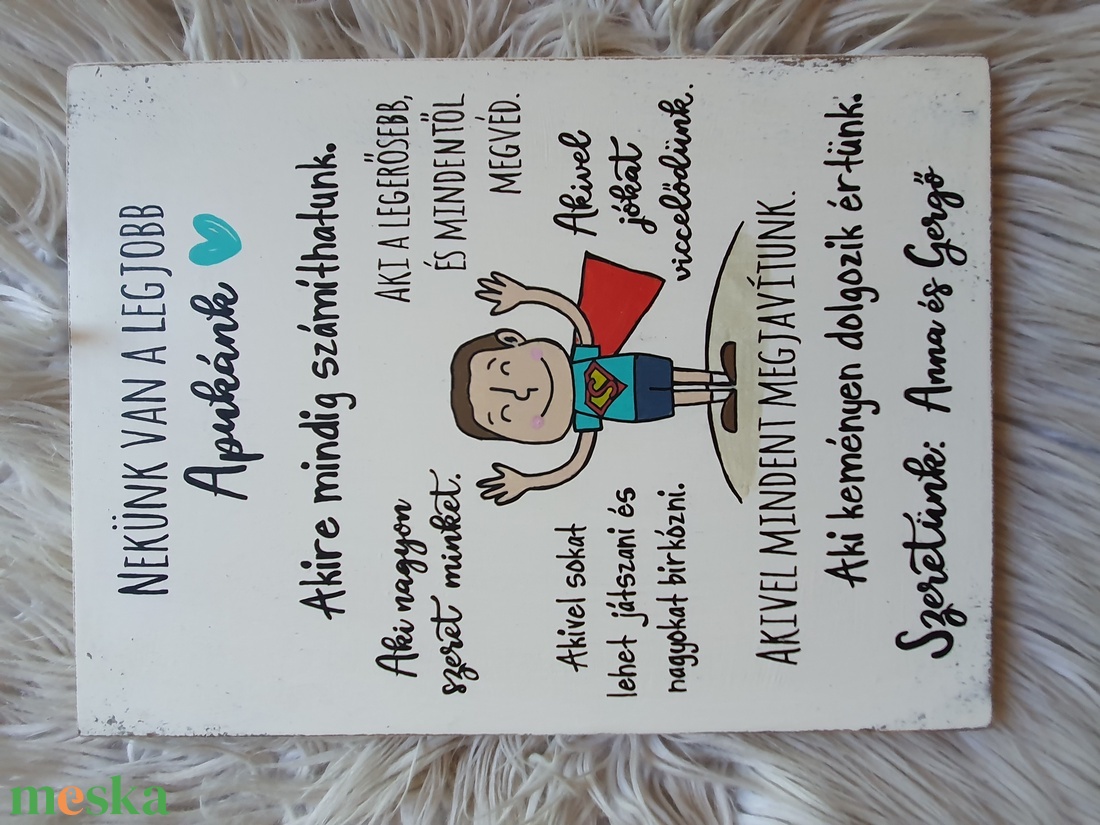 NEKÜNK VAN A LEGJOBB
Apukánk
Akire mindig számíthatunk.
Aki nagyon
szeret minket.
AKI A LEGERŐSEBB,
ÉS MINDENTŐL
MEGVÉD.
Akivel sokat
lehet játszani és
nagyokat birkózni.
Akivel
jókat
viccelődünk.
S
AKIVEL MINDENT MEGJAVÍTUNK.
Aki keményen dolgozik értünk.
Szeretünk: Anna és Gergő
meska